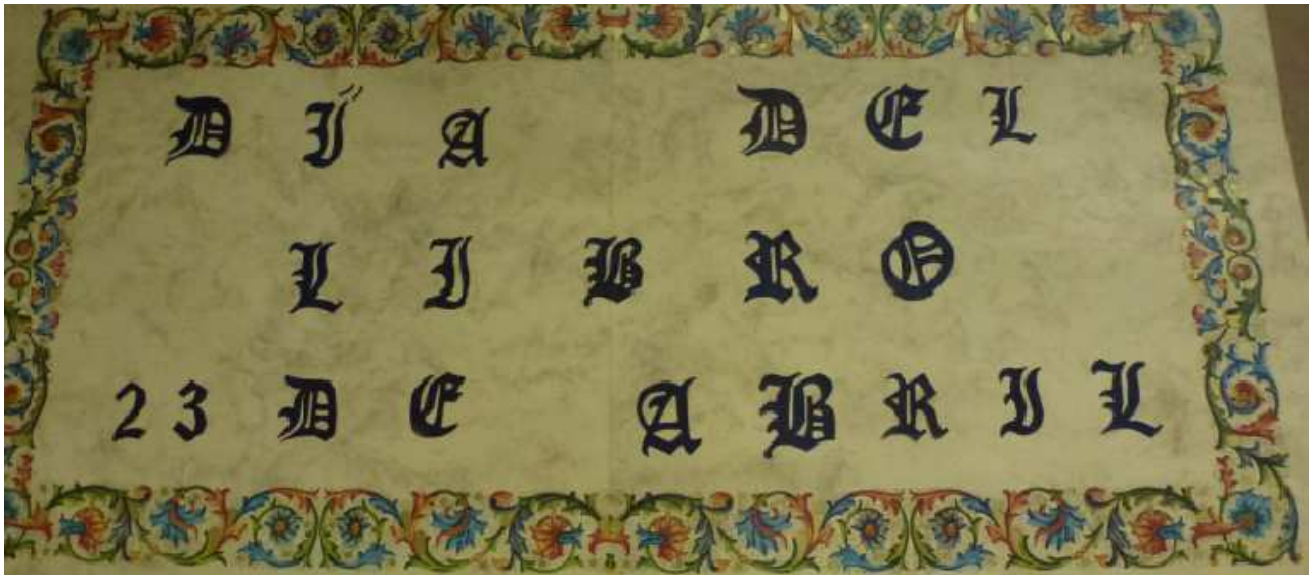 DÍA DEL
LIBRO
23 DE ABRIL